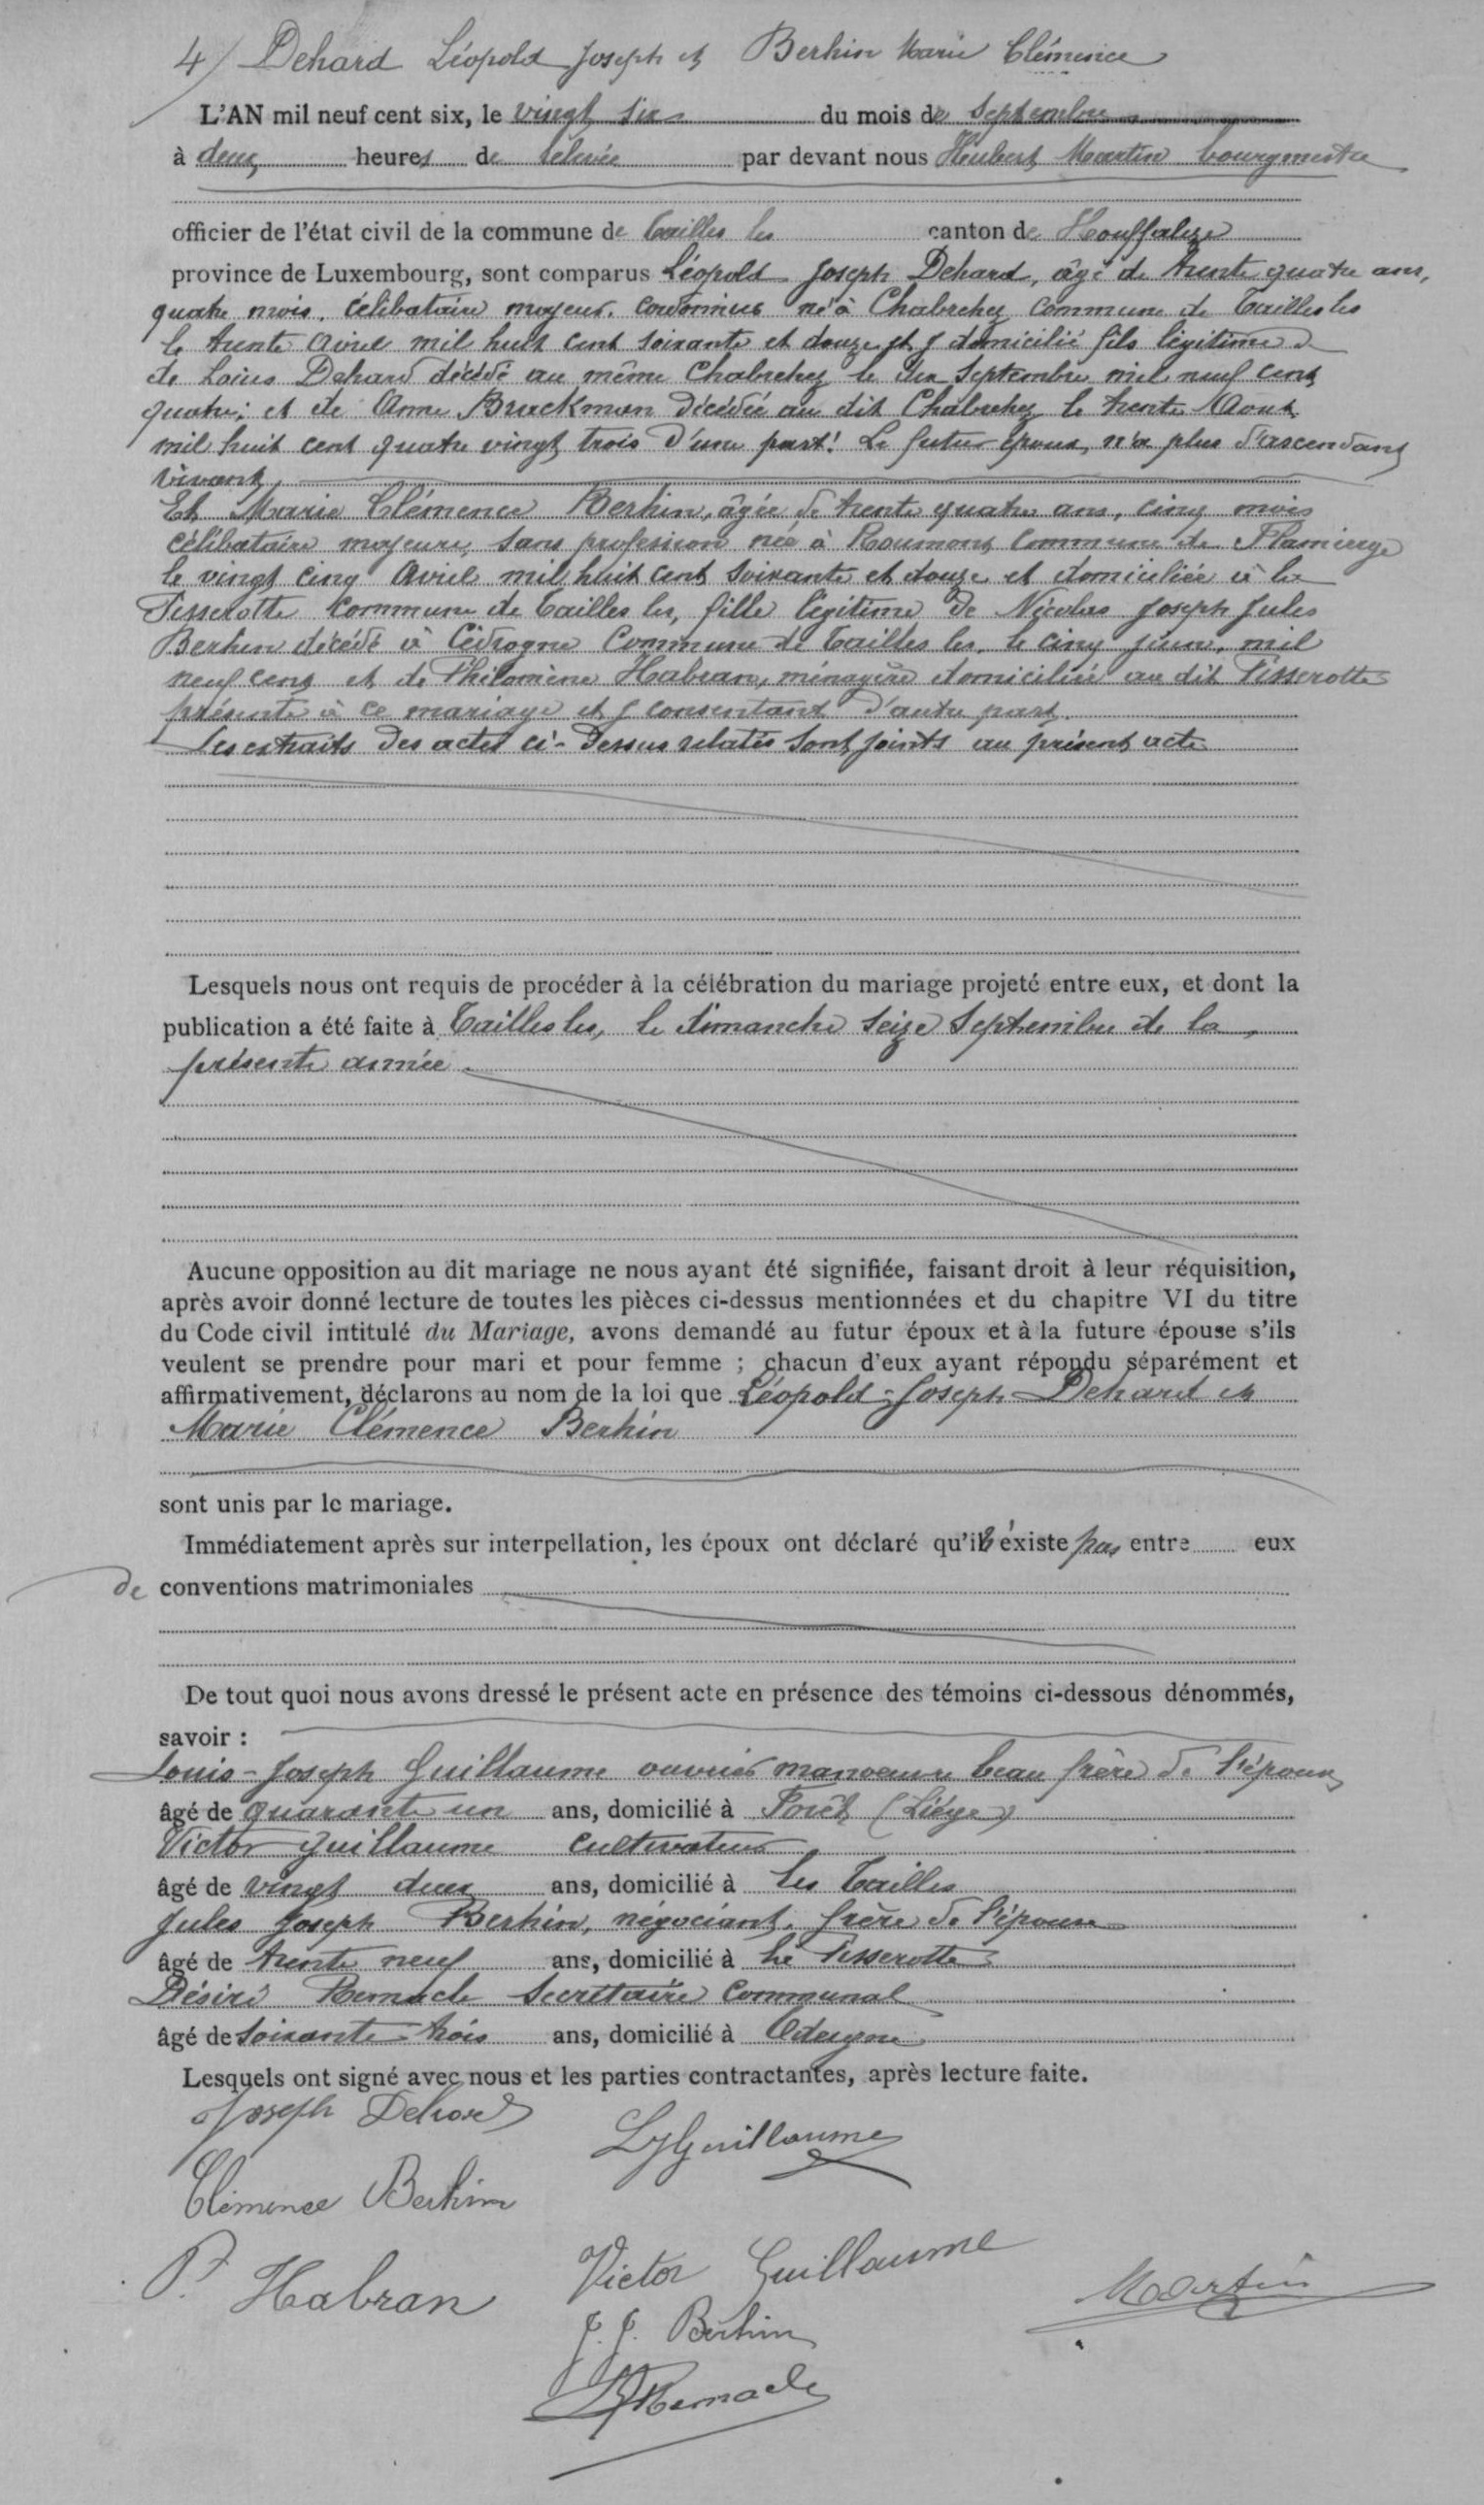 4/ Dehard Léopold Joseph et Berhin Marie Clémence
L'AN mil neuf cent six, le vingt six du mois de Septembre
à deux heures de relevée par devant nous Hubert Martin bourgmestre
officier de l'état civil de la commune de Tailles les canton de Houffalize
province de Luxembourg, sont comparus Léopold Joseph Dehard, âgé de trente quatre ans,
quatre mois, célibataire majeur, cordonnier né à Chabrehez commune de Tailles les
le trente avril mil huit cent soixante et douze et y domicilié fils légitime
de Louis Dehard décédé au même Chabrehez le dix Septembre mil neuf cent
quatre; et de Anne Bruckman décédée au dit Chabrehez le trente Aout
mil huit cent quatre vingt trois d'une part! Le futur époux n'a plus d'ascendant
vivant,
Et Marie Clémence Berhin, âgée de trente quatre ans, cinq mois
célibataire majeure, sans profession née à Roumont commune de Flamierge
le vingt cinq Avril mil huit cent soixante et douze et domiciliée à la
Pisserotte commune de Tailles les, fille légitime de Nicolas Joseph Jules
Berhin décédé à Cédrogne commune de Tailles les, le cinq juin, mil
neuf cent et de Philomène Habran, ménagère domiciliée au dit Pisserotte
présente à ce mariage et y consentant d'autre part.
Les extraits des actes ci-dessus relatés sont joints au présent acte
Lesquels nous ont requis de procéder à la célébration du mariage projeté entre eux, et dont la
publication a été faite à Tailles les, le dimanche seize Septembre de la
présente année.
Aucune opposition au dit mariage ne nous ayant été signifiée, faisant droit à leur réquisition,
après avoir donné lecture de toutes les pièces ci-dessus mentionnées et du chapitre VI du titre
du Code civil intitulé du Mariage, avons demandé au futur époux et à la future épouse s'ils
veulent se prendre pour mari et pour femme ; chacun d'eux ayant répondu séparément et
affirmativement, déclarons au nom de la loi que Léopold-Joseph Dehard et
Marie Clémence Berhin
sont unis par le mariage.
Immédiatement après sur interpellation, les époux ont déclaré qu'il n'existe pas entre eux
de conventions matrimoniales
De tout quoi nous avons dressé le présent acte en présence des témoins ci-dessous dénommés,
savoir :
Louis-Joseph Guillaume ouvrier manœuvre beau frère de l'époux
âgé de quarante un ans, domicilié à Forêt (Liége)
Victor Guillaume cultivateur
âgé de vingt deux ans, domicilié à Les Tailles
Jules Joseph Berhin, négociant, frère de l'épouse
âgé de trente neuf ans, domicilié à la Pisserotte
Désiré Remacle Secrétaire Communal
âgé de soixante-trois ans, domicilié à Odeigne
Lesquels ont signé avec nous et les parties contractantes, après lecture faite.
Joseph Dehard
LJGuillaume
Clémence Berhin
P. Habran
Victor Guillaume
J. J. Berhin
Martin
D Remacle